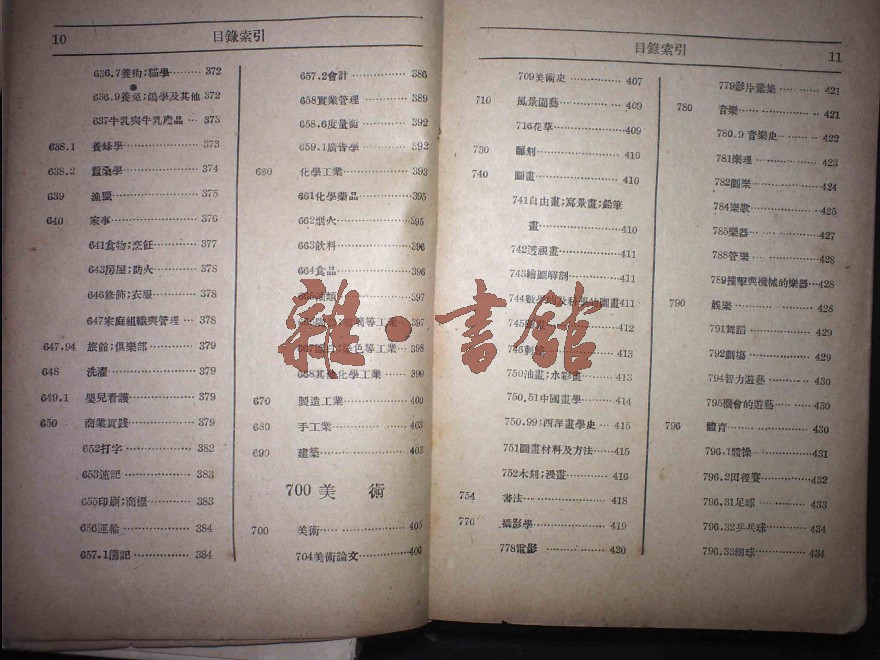 10
目錄索引
636.7養狗;貓學 372
636.9養兔;鴿學及其他 372
637牛乳與牛乳產品 373
638.1 養蜂學 373
638.2 蠶桑學 374
639 漁獵 375
640 家事 376
641食物;烹飪 377
643房屋;防火 378
646修飾;衣服 378
647家庭組織與管理 378
647.94 旅館;俱樂部 379
648 洗濯 379
649.1 嬰兒看護 379
650 商業實踐 379
652打字 382
653速記 383
655印刷;商標 383
656運輸 384
657.1簿記 384
657.2會計 386
658實業管理 389
658.6度量衡 392
659.1廣告學 392
660 化學工業 393
661化學藥品 395
662烟火 395
663飲料 396
664食品 396
665油類 397
等工業 397
染色等工業 398
668其他化學工業 399
670 製造工業 400
680 手工業 403
690 建築 403
700 美術
700 美術 405
704美術論文 406
目錄索引
11
709美術史 407
710 風景園藝 409
716花草 409
730 雕刻 410
740 圖畫 410
741自由畫;寫景畫;鉛筆
畫 410
742透視畫 411
743繪圖解剖 411
744數學的及科學的圖畫 411
745 412
746刺繡 413
750油畫;水彩畫 413
750.51中國畫學 414
750.99:西洋畫學史 415
751圖畫材料及方法 415
752木刻;漫畫 416
754 書法 418
770 攝影學 419
778電影 420
779影片叢集 421
780 音樂 421
780.9音樂史 422
781樂理 423
782劇樂 424
784樂歌 425
785樂器 427
788管樂 428
789撞擊與機械的樂器 428
790 娛樂 428
791舞蹈 429
792劇場 429
794智力遊藝 430
795機會的遊藝 430
796 體育 430
796.1體操 431
796.2田徑賽 432
796.31足球 433
796.32乒乓球 434
796.33網球 434
雜·書館